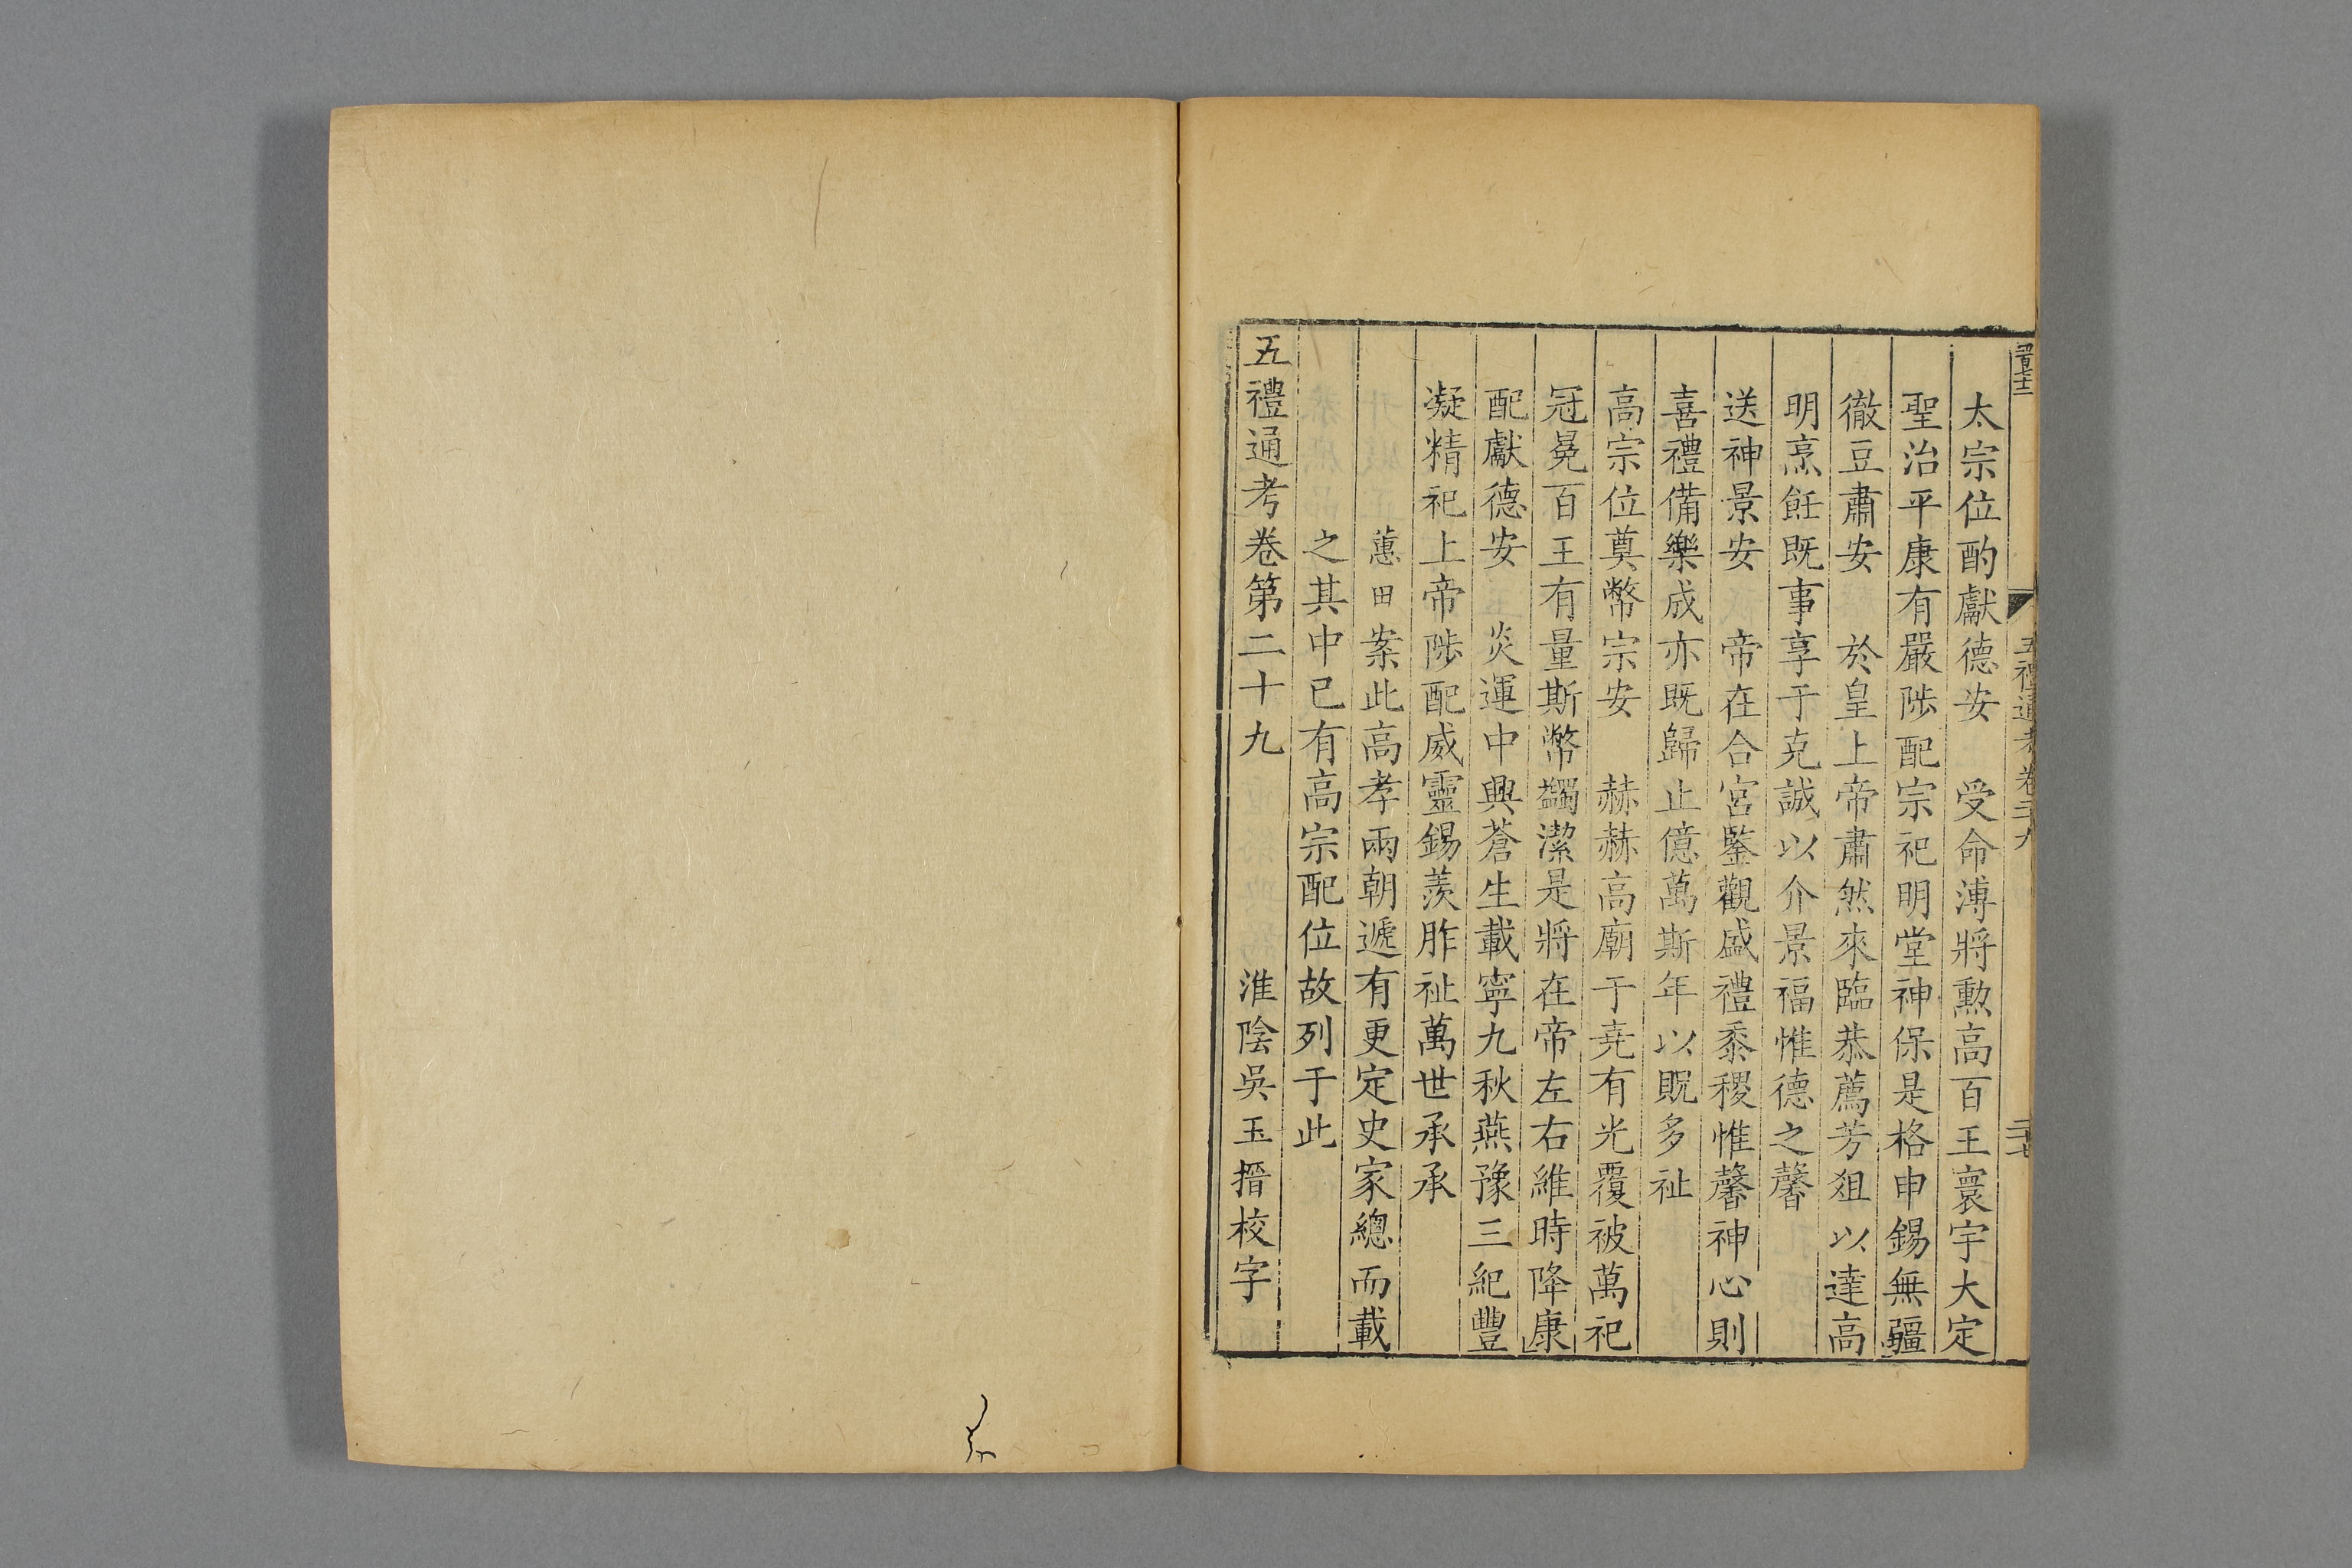 太宗位酌獻德安　受命溥將勳高百王寰宇大定
聖治平康有嚴陟配宗祀明堂神保是格申錫無疆
徹豆肅安　於皇上帝肅然來臨恭薦芳俎以達高
明烹飪既事享于克誠以介景福惟德之馨
送神景安　帝在合宮鑒觀盛禮黍稷惟馨神心則
喜禮備樂成亦既歸止億萬斯年以貺多祉
高宗位奠幣宗安　赫赫高廟于堯有光覆被萬祀
冠冕百王有量斯幣蠲潔是將在帝左右維時降康
配獻德安　炎運中興蒼生載寧九秋燕豫三紀豐
凝精祀上帝陟配威靈錫羨胙祉萬世承承
蕙田案此高孝兩朝遞有更定史家總而載
之其中已有高宗配位故列于此
五禮通考卷第二十九　淮陰吳玉搢校字
五禮通考卷二十九